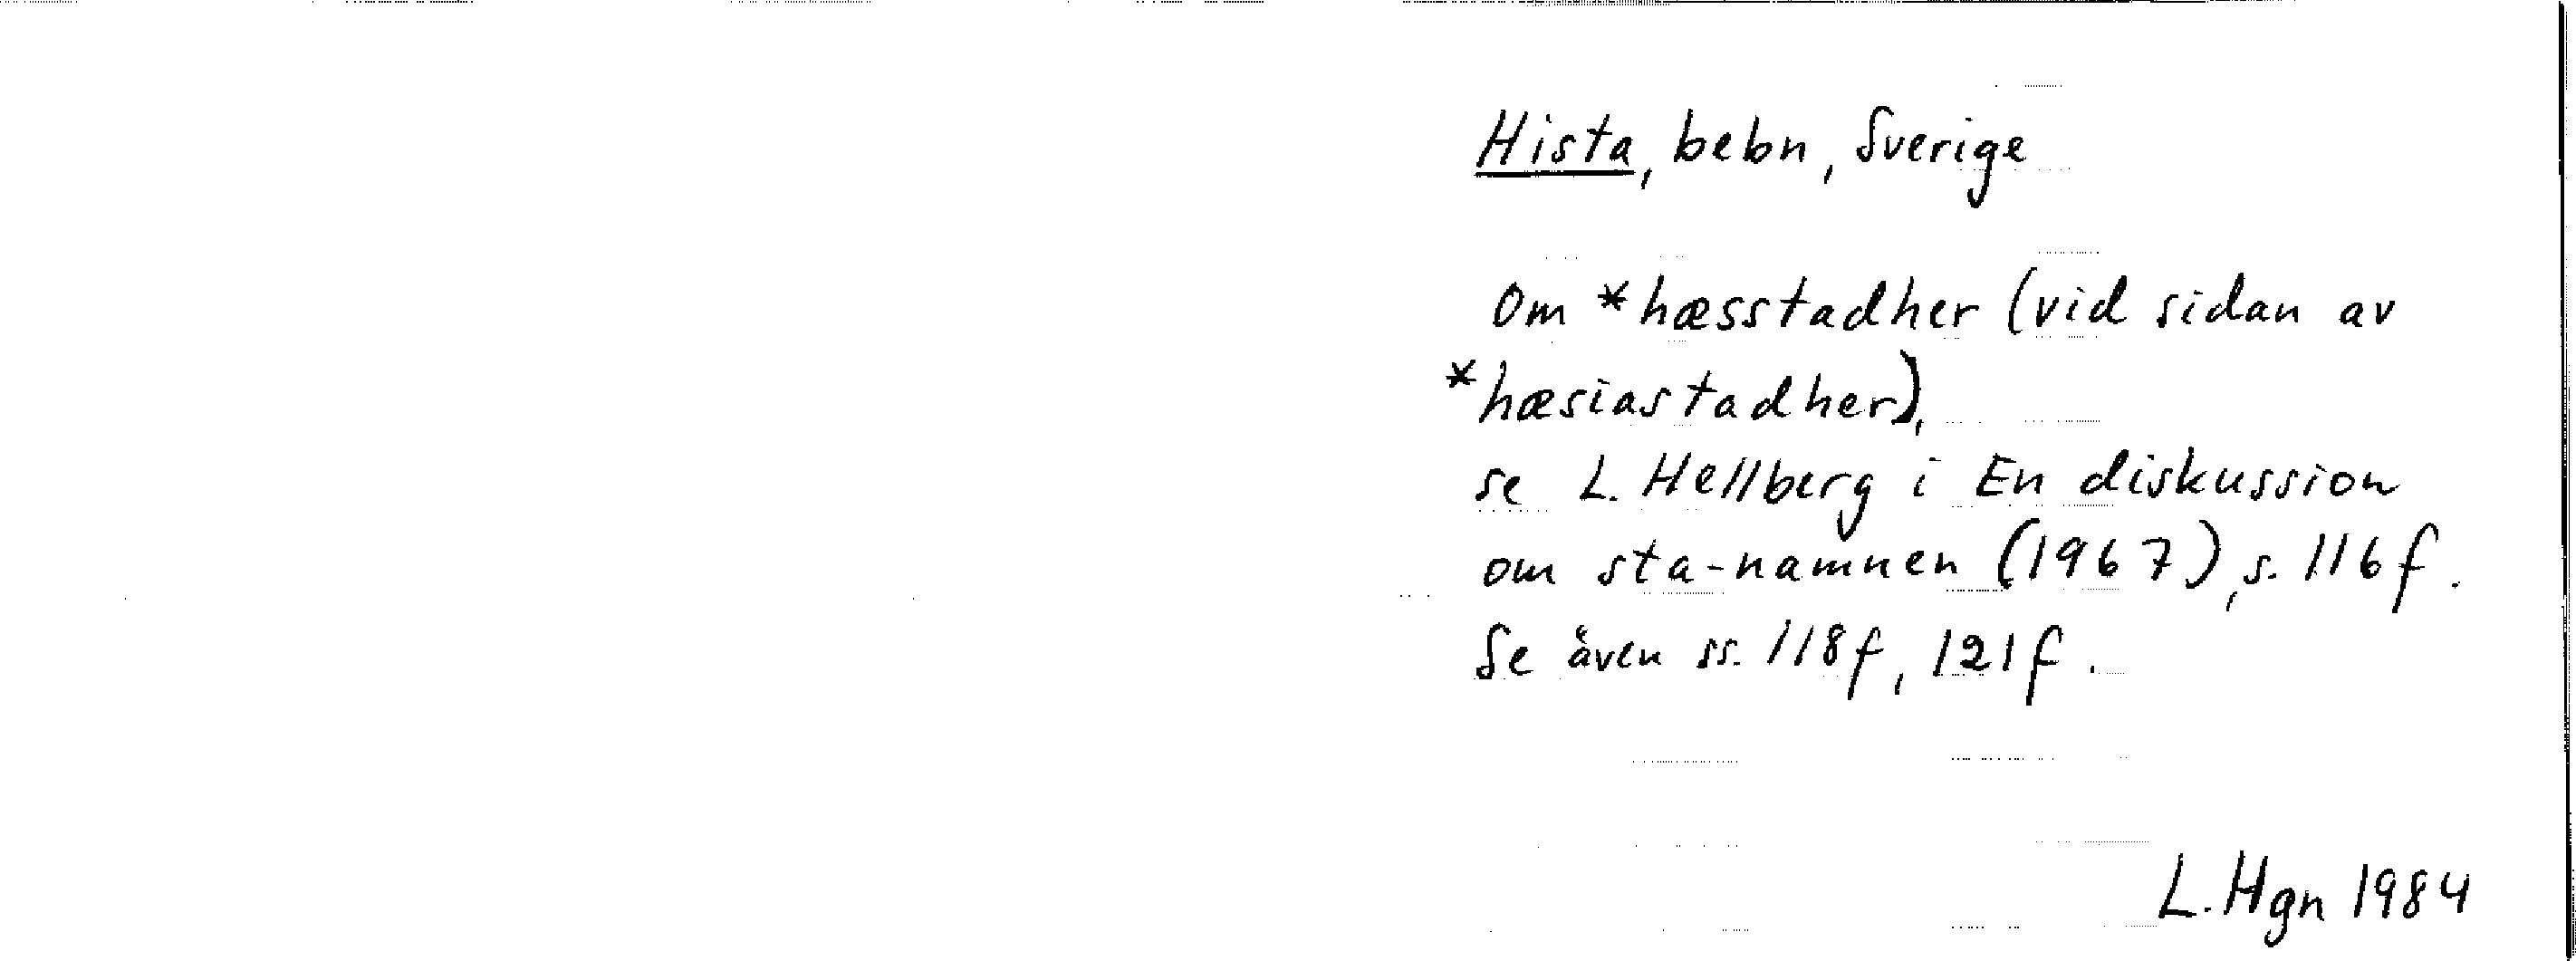 Hista, bebn, Sverige
Om *hæsstadher (vid sidan av
*hæsiastadher),
se L. Hellberg i En diskussion
om sta-namnen (1967), s. 116 f.
Se även ss. 118 f, 121 f.
L. Hgn 1984